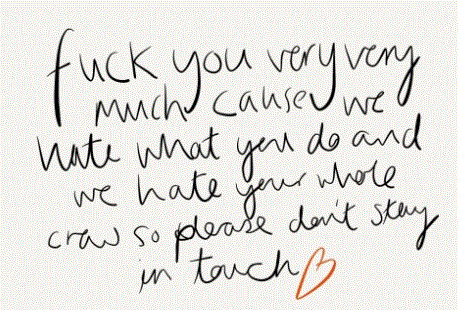 fuck you very very
much cause we
hate what you do and
we hate your whole
craw so please don't stay
in touch